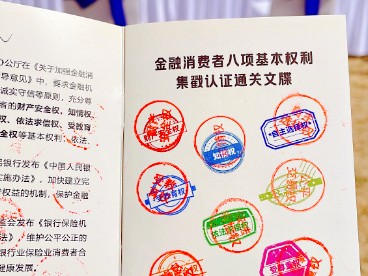 办公厅在《关于加强金融消
导意见》中，要求金融机
诚实守信等原则，充分尊
者的财产安全权，知情权，
权、依法求偿权、受教育
全权等基本权利，依法、
民银行发布《中国人民银
实施办法》，加快建立完
护权益的机制，保护金融
监会发布《银行保险机
法》，维护公平公正的
行业保险业消费者合
健康发展。
金融消费者八项基本权利
集戳认证通关文牒
知情权
自主选择权
依法求偿权
受教育权